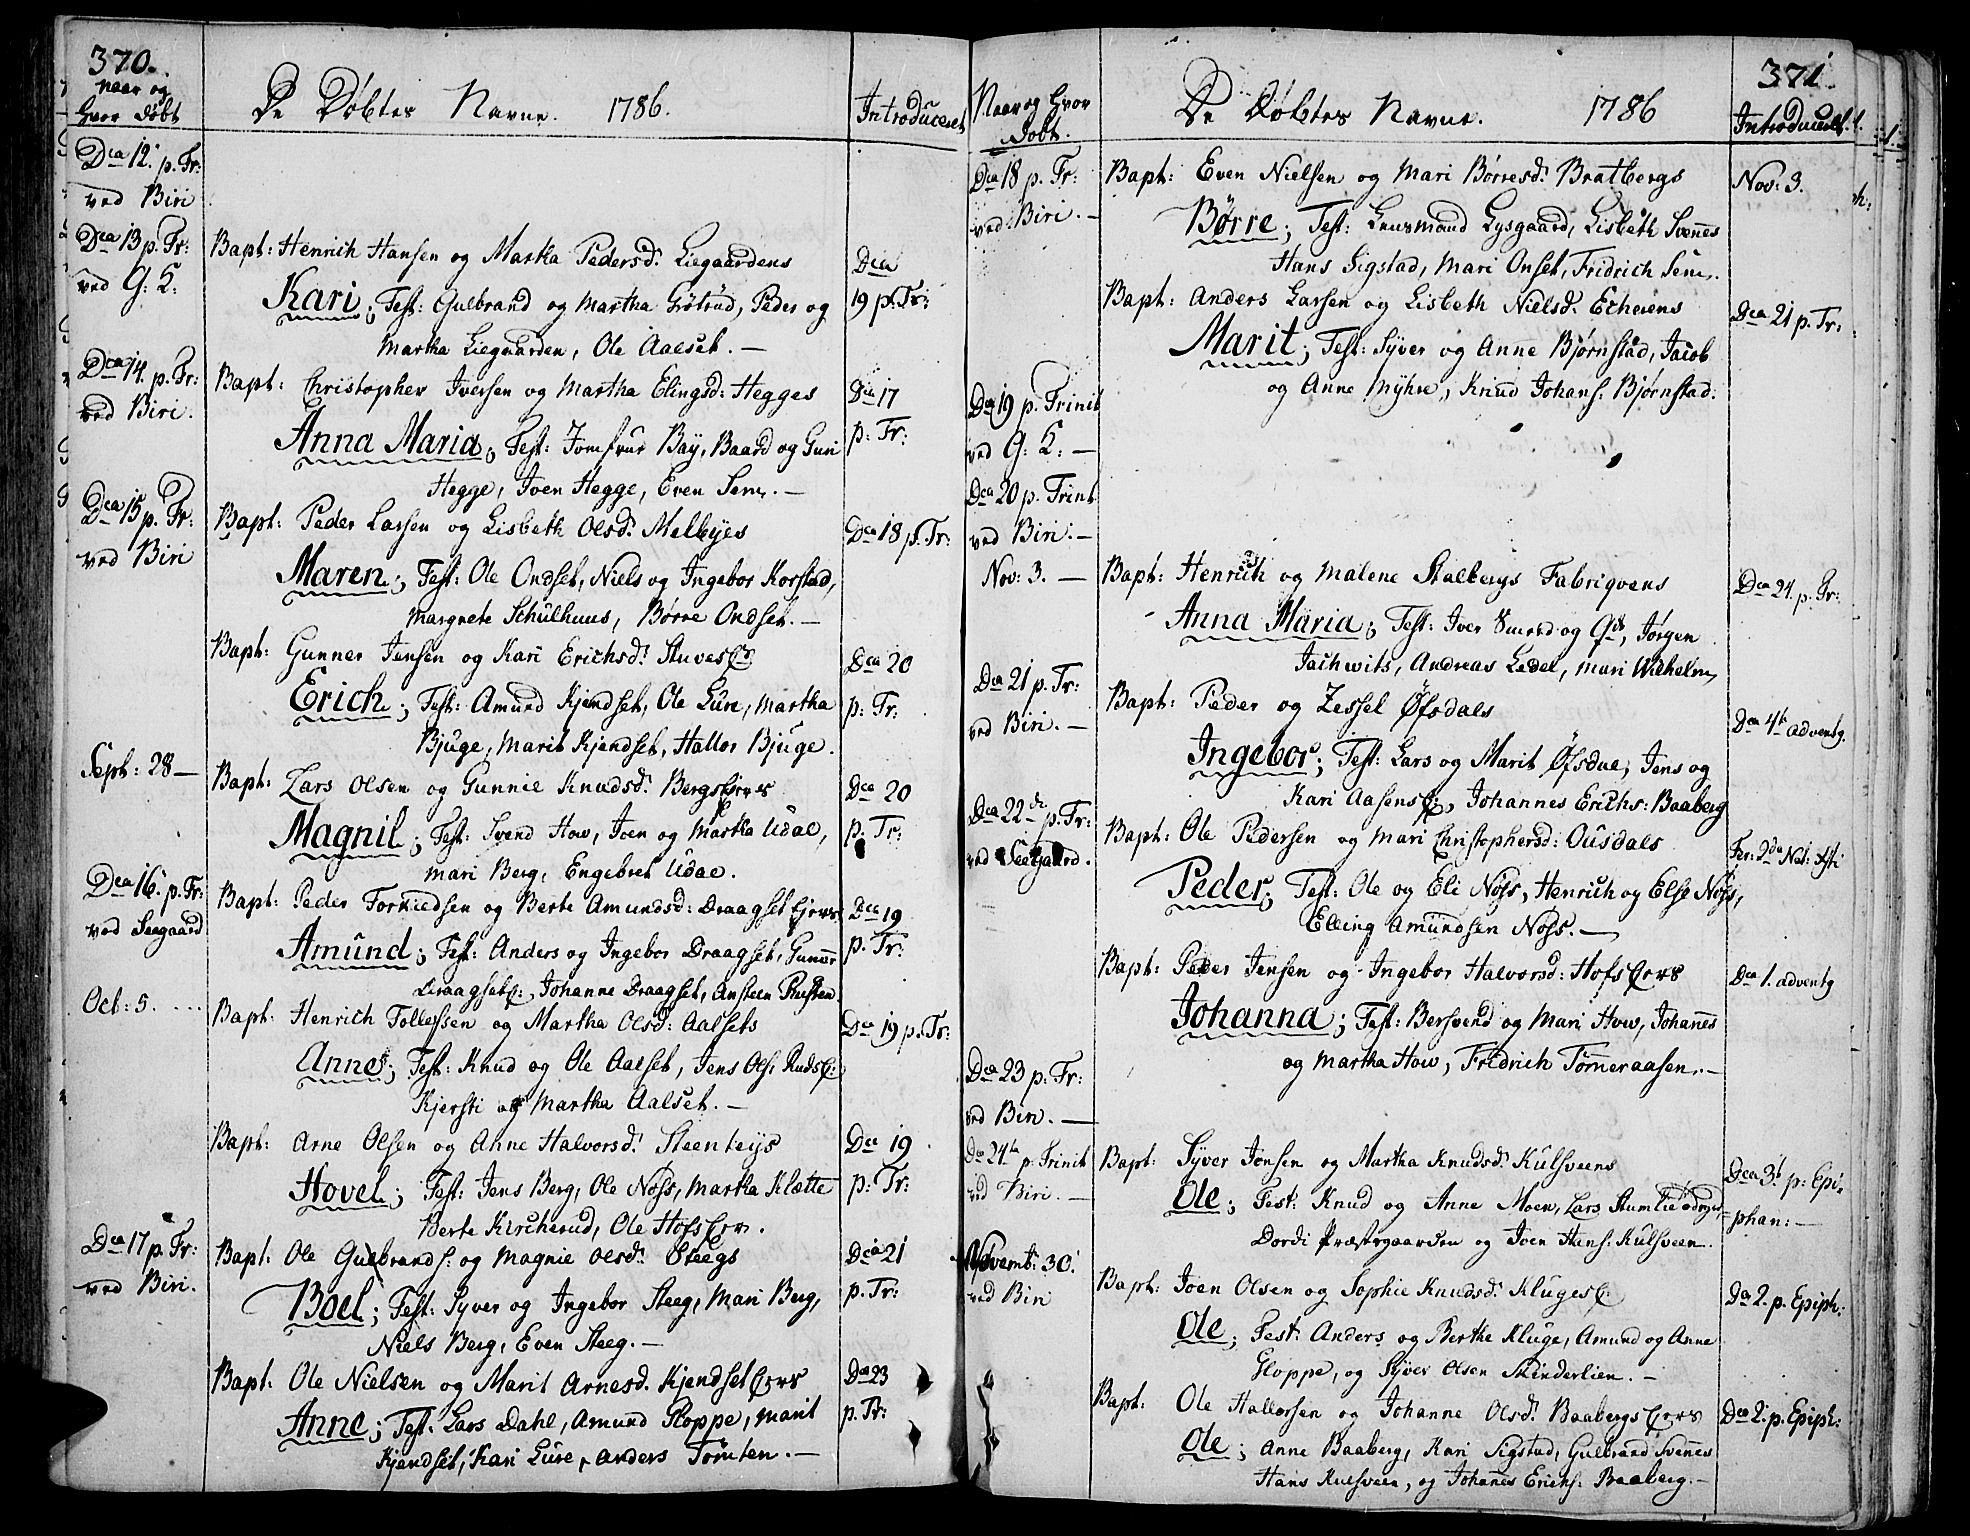 370.
Naar og
Hvor Døbt
De Døbtes Navne. 1786.
Introduceret
Dca 12. p. Tr:
ved Biri
Dca 13 p. Tr:
ved G: K:
Bapt: Henrich Hansen og Martha Pedersd: Liegaardens
Dca
19 p. Tr:
Kari; Test: Gulbrand og Martha Grøtrud, Peder og
Martha Liegaarden, Ole Aalset. —
Dca 14. p. Tr:
ved Biri.
Bapt: Christopher Iversen og Martha Elingsd: Hegges
Dca 17
p: Tr:
Anna Maria; Test: Jomfrue Bay, Baard og Guri
Hegge, Joen Hegge, Even Sem. —
Dca 15 p. Tr:
ved Biri
Bapt: Peder Larsen og Lisbeth Olsd: Melbyes
Dca 18 p. Tr:
Maren; Test: Ole Ondset, Niels og Ingebor Korstad,
Margrete Schulhuus, Børre Ondset. —
Bapt: Gunner Jensen og Kari Erichsd: Stuves
Dca 20
p: Tr:
Erich; Test: Amund Kjendset, Ole Lure, Martha
Bjuge, Marit Kjendset, Hallor Bjuge.
Sept: 28 —
Bapt: Lars Olsen og Gunnie Knudsd: Bergs
Dca 20
p: Tr:
Magnil; Test: Svend How, Joen og Martha Udae,
Mari Berg, Engebret Udae.
Dca 16. p. Tr:
ved Seegaard
Bapt: Peder Torkildsen og Berte Amundsd: Draagset
Dca 19
p. Tr:
Amund; Test: Anders og Ingebor Draagset, Gunner
Draagset, Johanne Draagset, Ansteen Prusten.
Oct: 5. ....
Bapt: Henrich Tollefsen og Martha Olsd: Aalsets
Dca 19 p. Tr:
Anne; Test: Knud og Ole Aalset, Jens Ols: Ruds
Kjersti og Martha Aalset. —
Bapt: Arne Olsen og Anne Halvorsd: Steenleys
Dca 19
p: Tr:
Hovel; Test: Jens Berg, Ole Noss, Martha Klætte
Berte Kircherud, Ole Hofs
Dca 17 p. Tr:
ved Biri.
Bapt: Ole Gulbrands: og Magnie Olsd: Steegs
Dca 21
p: Tr:
Boel; Test: Syver og Ingebor Steeg, Mari Berg,
Niels Berg, Even Steeg. —
Bapt: Ole Nielsen og Marit Arnesd: Kjendset
Dca 23
p. Tr:
Anne; Test: Lars Dahl, Amund Gloppe, Marit
Kjendset, Kari Lure, Anders Tømten. —
371.
Naar og Hvor
Døbt.
De Døbtes Navne. 1786
Introduceret
Dca 18 p. Tr:
ved Biri. —
Bapt: Even Nielsen og Mari Børresd: Bratbergs
Nov: 3.
Børre; Test: Lensmand Lysgaard, Lisbeth Svennes
Hans Sigstad, Mari Onset, Fridrich Sem.
Bapt: Anders Larsen og Lisbeth Nielsd:
Dca 21 p. Tr:
Marit; Test: Syver og Anne Bjørnstad, Jacob
og Anne Myhre, Knud Johans: Bjørnstad.
Dca 19 p. Trinit
ved G: K: —
Dca 20 p. Trinit
ved Biri. —
Nov: 3. —
Bapt: Henrich og Malene Stalbergs Fabriqvens
Dca 24. p. Tr:
Anna Maria; Test: Iver Smed og Jørgen
Jachwits, Andreas Ledel, Mari Wilhelm
Dca 21 p. Tr:
ved Biri. —
Bapt: Peder og Zessel Øfsdals
Dca 4te Adventg.
Ingebor; Test: Lars og Marit Øfsdal, Jens og
Kari Aasens, Johannes Erichs: Baaberg
Dca 22de p. Tr:
ved Seegaard.
Bapt: Ole Pedersen og Mari Christophersd: Ousdals
Fer: 2da Nat: Xsti
Peder; Test: Ole og Eli Noss, Henrich og Else Noss,
Elling Amundsen Noss. —
Bapt: Peder Jensen og Ingebor Halvorsd: Hofs
Dca 1. Adventg
Johanna; Test: Bersvend og Mari How, Johannes
og Martha How, Fridrich Tømmeraasen. —
Dca 23 p. Tr:
ved Biri. —
Dca 24de p. Trinit
ved Biri. —
Bapt: Syver Jonsen og Martha Knudsd: Kulsveens
Dca 3t p: Epi-
phan: —
Ole; Test: Knud og Anne Moen, Lars Stumlie
Dordi Præstegaarden og Joen Hans: Kulsveen.
Novemb: 30.
ved Biri
Bapt: Joen Olsen og Sophie Knudsd: Kluges
Dca 2. p. Epiph:
Ole; Test: Anders og Berthe Kluge, Amund og Anne
Gloppe, og Syver Olsen Skinderlien. —
Bapt: Ole Hallorsen og Johanne Olsd: Baabergs
Dca 2. p. Epiph:
Ole; Anne Baaberg, Kari Sigstad, Gulbrand Svennes
Hans Kulsveen, og Johannes Erichs: Baaberg. —